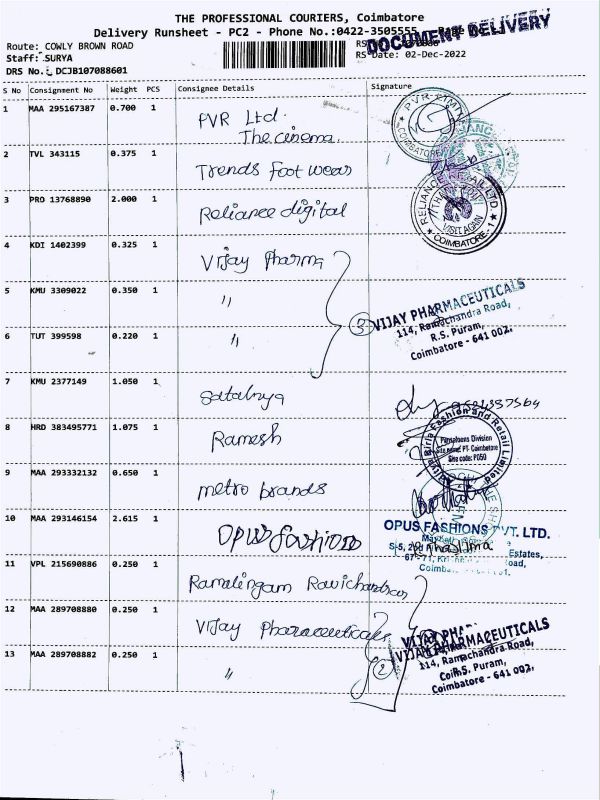 THE PROFESSIONAL COURIERS, Coimbatore
Delivery Runsheet - PC2 - Phone No.:0422-3505555
DOCUMENT DELIVERY
Route: COWLY BROWN ROAD
Staff: SURYA
RS Date: 02-Dec-2022
DRS No.: DCJB107088601
S No Consignment No Weight PCS Consignee Details Signature
1 MAA 295167387 0.700 1 PVR Ltd.
The cinema.
2 TVL 343115 0.375 1 Trends foot wear
3 PRO 13768890 2.000 1 Reliance digital
RELIANCE RETAIL LTD.
VISIT AGAIN
COIMBATORE-1
4 KDI 1402399 0.325 1 Vijay Pharma
5 KMU 3309022 0.350 1 "
3
VIJAY PHARMACEUTICALS
114, Ramachandra Road,
R.S. Puram,
Coimbatore - 641 002.
6 TUT 399598 0.220 1 "
7 KMU 2377149 1.050 1
8 HRD 383495771 1.075 1 Ramesh
Pantaloons Division
Site code: P050
9 MAA 293332132 0.650 1 metro brands
10 MAA 293146154 2.615 1 OPUS fashions
OPUS FASHIONS PVT. LTD.
Estates,
11 VPL 215690886 0.250 1 Ramalingam Ravichandran
12 MAA 289708880 0.250 1 Vijay Pharaceuticals
VIJAY PHARMACEUTICALS
114, Ramachandra Road,
R.S. Puram,
Coimbatore - 641 002.
13 MAA 289708882 0.250 1 "
2